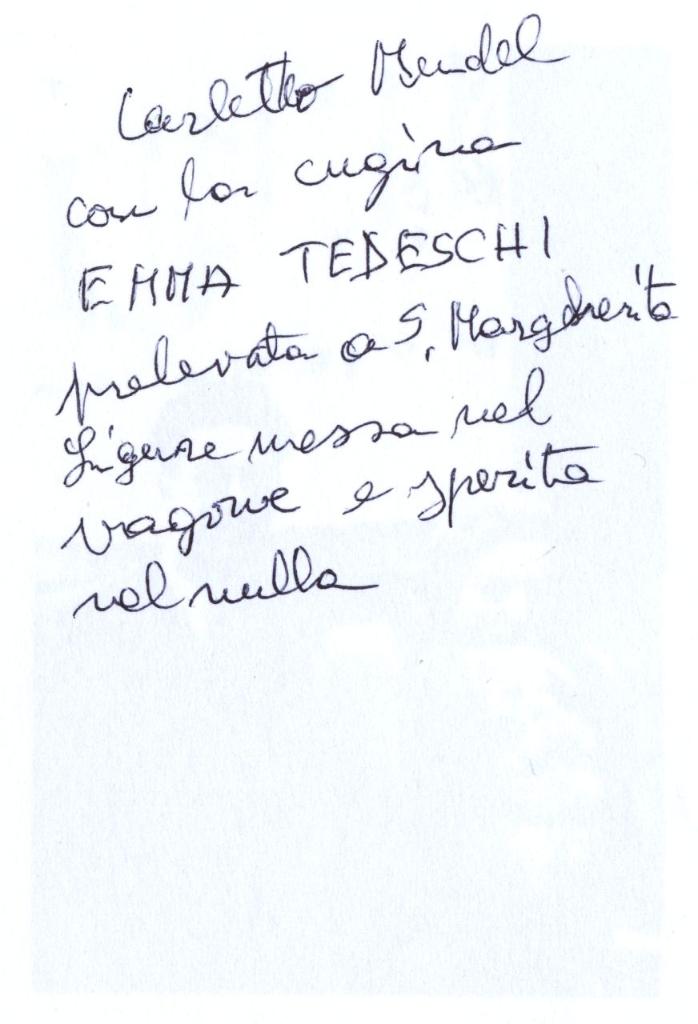 Carletto Mendel
con la cugina
EMMA TEDESCHI
prelevata a S. Margherita
Ligure messa nel
vagone e sparita
nel nulla